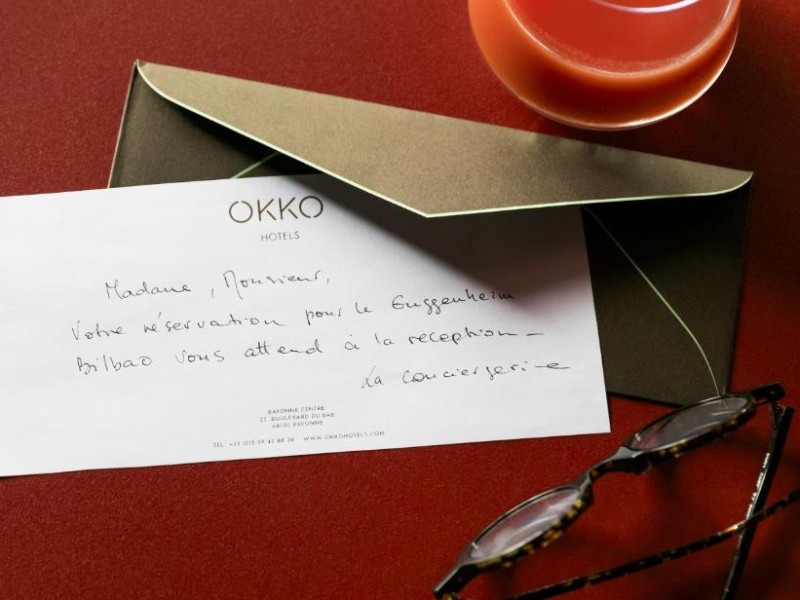 OKKO
HOTELS
Madame, Monsieur,
Votre réservation pour le Guggenheim
Bilbao vous attend à la réception_
La conciergerie
BAYONNE CENTRE
BOULEVARD DU BAB
BAYONNE
WWW.OKKOHOTELS.COM